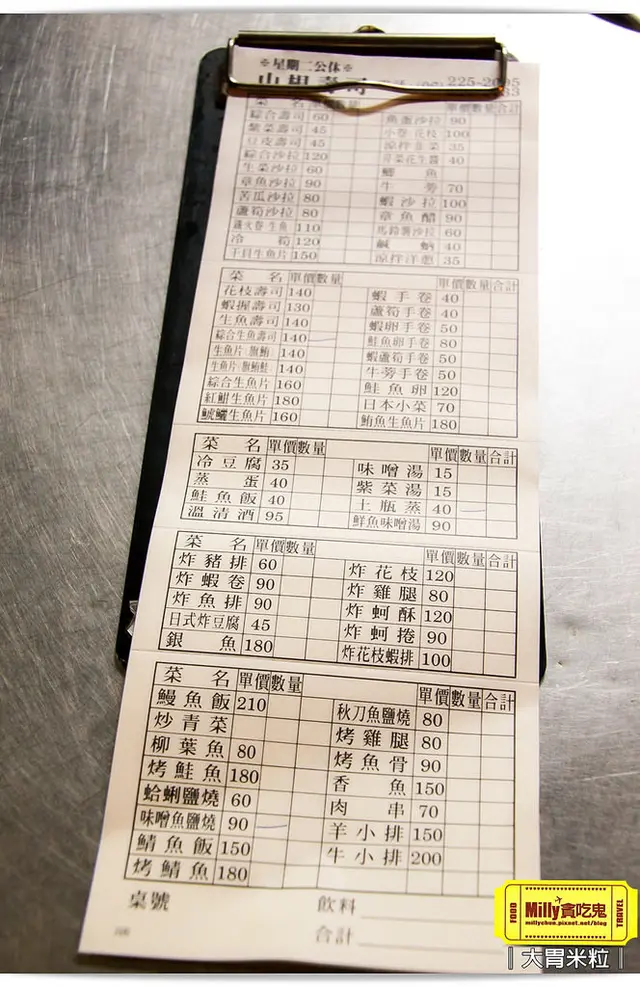 ※星期二公休※
225-2695
菜 名 單價數量 單價數量合計
綜合壽司 60 魚蛋沙拉 90
紫菜壽司 45 小卷花枝 100
豆皮壽司 45 涼拌韭菜 35
綜合沙拉 120 芹菜花生醬 40
生菜沙拉 60 鯽 魚
章魚沙拉 90 牛 蒡 70
苦瓜沙拉 80 蝦沙拉 100
蘆筍沙拉 80 章魚醋 90
生魚 110 馬鈴薯沙拉 60
冷 筍 120 鹹 蜊 40
干貝生魚片 150 涼拌洋蔥 35
菜 名 單價數量 單價數量合計
花枝壽司 140 蝦手卷 40
蝦握壽司 130 蘆筍手卷 40
生魚壽司 140 蝦卵手卷 50
綜合生魚壽司 140 鮭魚卵手卷 80
生魚片(旗鮪) 140 蝦蘆筍手卷 50
生魚片(旗鮪鮭) 140 牛蒡手卷 50
綜合生魚片 160 鮭魚卵 120
紅魽生魚片 180 日本小菜 70
鯱鱺生魚片 160 鮪魚生魚片 180
菜 名 單價數量 單價數量合計
冷豆腐 35 味噌湯 15
蒸 蛋 40 紫菜湯 15
鮭魚飯 40 土瓶蒸 40
溫清酒 95 鮮魚味噌湯 90
菜 名 單價數量 單價數量合計
炸豬排 60 炸花枝 120
炸蝦卷 90 炸雞腿 80
炸魚排 90 炸蚵酥 120
日式炸豆腐 45 炸蚵捲 90
銀 魚 180 炸花枝蝦排 100
菜 名 單價數量 單價數量合計
鰻魚飯 210 秋刀魚鹽燒 80
炒青菜 烤雞腿 80
柳葉魚 80 烤魚骨 90
烤鮭魚 180 香 魚 150
蛤蜊鹽燒 60 肉 串 70
味噌魚鹽燒 90 羊小排 150
鯖魚飯 150 牛小排 200
烤鯖魚 180
桌號 飲料
合計
FOOD Milly貪吃鬼 TRAVEL
millychun.pixnet.net/blog
| 大胃米粒 |